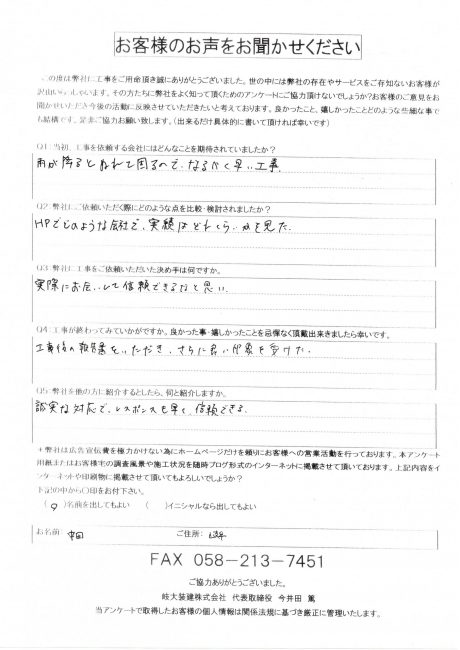 お客様のお声をお聞かせください
この度は弊社に工事をご用命頂き誠にありがとうございました。世の中には弊社の存在やサービスをご存知ないお客様が
沢山いらっしゃいます。その方たちに弊社をよく知って頂くためのアンケートにご協力頂けないでしょうか?お客様のご意見をお
聞かせいただき今後の活動に反映させていただきたいと考えております。良かったこと、嬉しかったことどのような些細な事で
も結構です。是非ご協力お願い致します。(出来るだけ具体的に書いて頂ければ幸いです)
Q1:当初、工事を依頼する会社にはどんなことを期待されていましたか?
雨が降るとぬれて困るので、なるべく早い工事
Q2:弊社にご依頼いただく際にどのような点を比較・検討されましたか?
HPでどのような会社で、実績はどれくらいかを見た。
Q3:弊社に工事をご依頼いただいた決め手は何ですか。
実際にお会いして信頼できるなと思い。
Q4:工事が終わってみていかがですか。良かった事・嬉しかったことを忌憚なく頂戴出来きましたら幸いです。
工事後の報告書をいただき、さらに良い印象を受けた。
Q5:弊社を他の方に紹介するとしたら、何と紹介しますか。
誠実な対応で、レスポンスも早く、信頼できる。
*弊社は広告宣伝費を極力かけない為にホームページだけを頼りにお客様への営業活動を行っております。本アンケート
用紙またはお客様宅の調査風景や施工状況を随時ブログ形式のインターネットに掲載させて頂いております。上記内容をイ
ンターネットや印刷物に掲載させて頂いてもよろしいでしょうか?
下記の中から○印をお付下さい。
(○)名前を出してもよい ( )イニシャルなら出してもよい
お名前 ご住所:
FAX 058-213-7451
ご協力ありがとうございました。
岐大装建株式会社 代表取締役 今井田 篤
当アンケートで取得したお客様の個人情報は関係法規に基づき厳正に管理いたします。